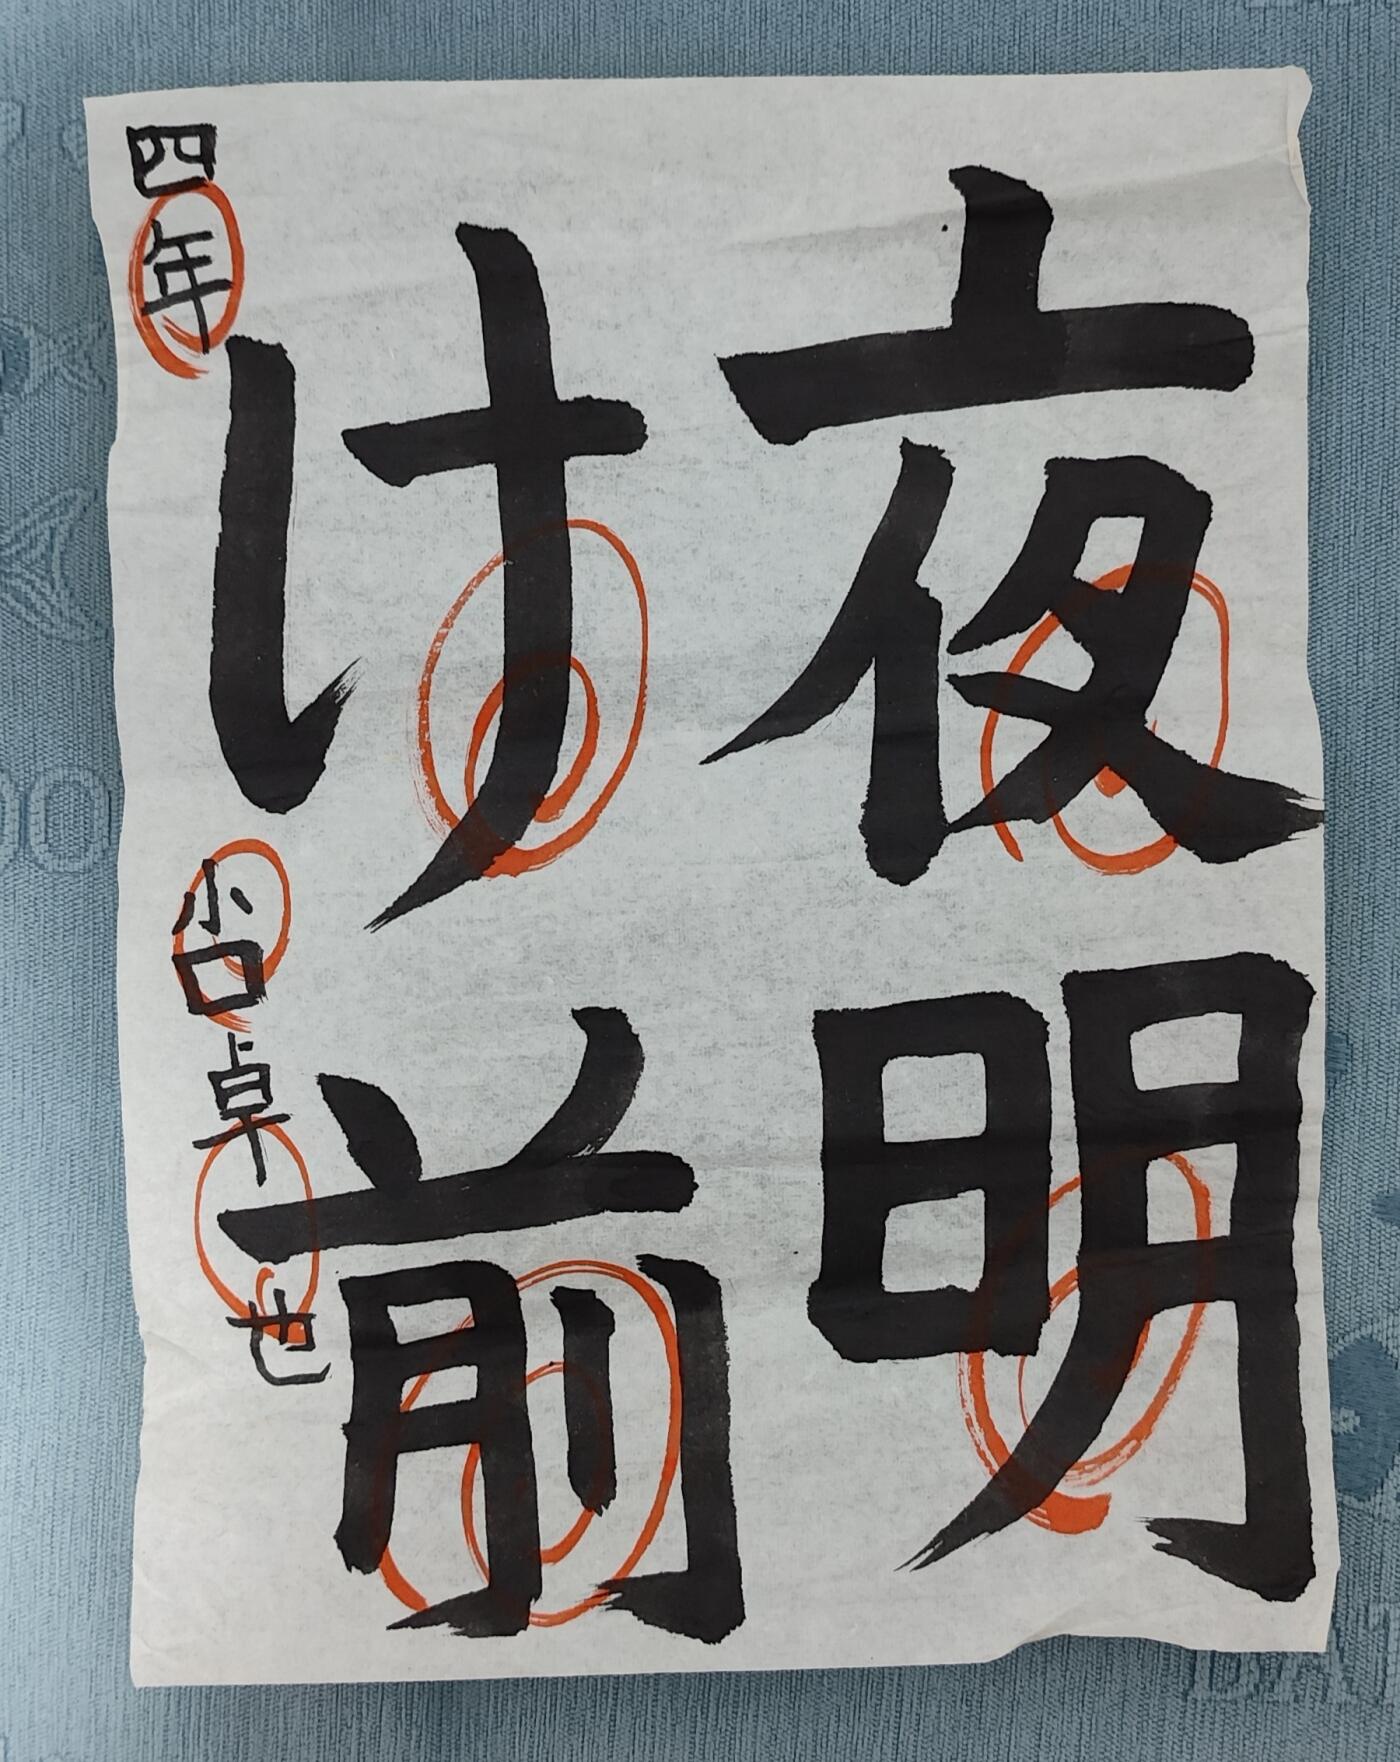 夜明
け前
四年 小口卓也